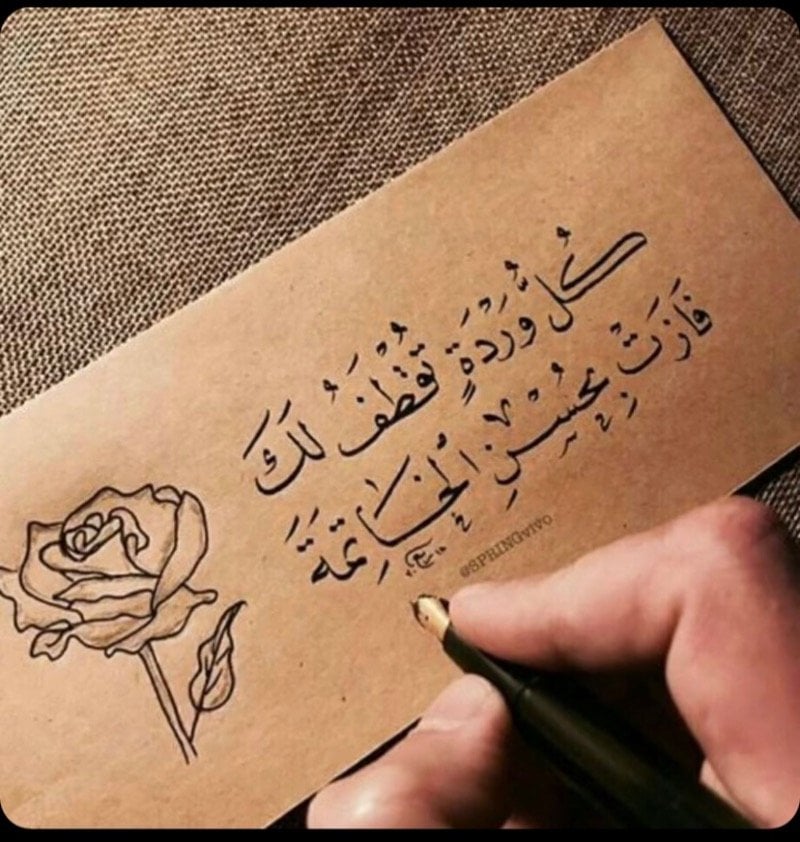 كُلُّ وَرْدَةٍ تُقْطَفُ لَكَ
فَازَتْ بِحُسْنِ الْخَاتِمَةَ
@SPRINGVIVO